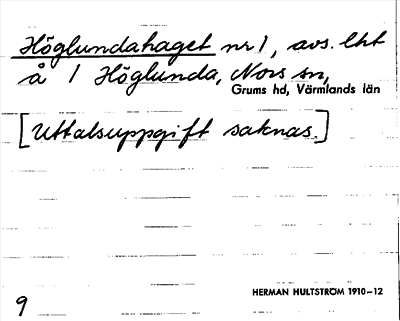 Höglundahaget nr 1, avs. lht
å 1 Höglunda, Nors sn,
Grums hd, Värmlands län
[Uttalsuppgift saknas.]
HERMAN HULTSTRÖM 1910-12
9